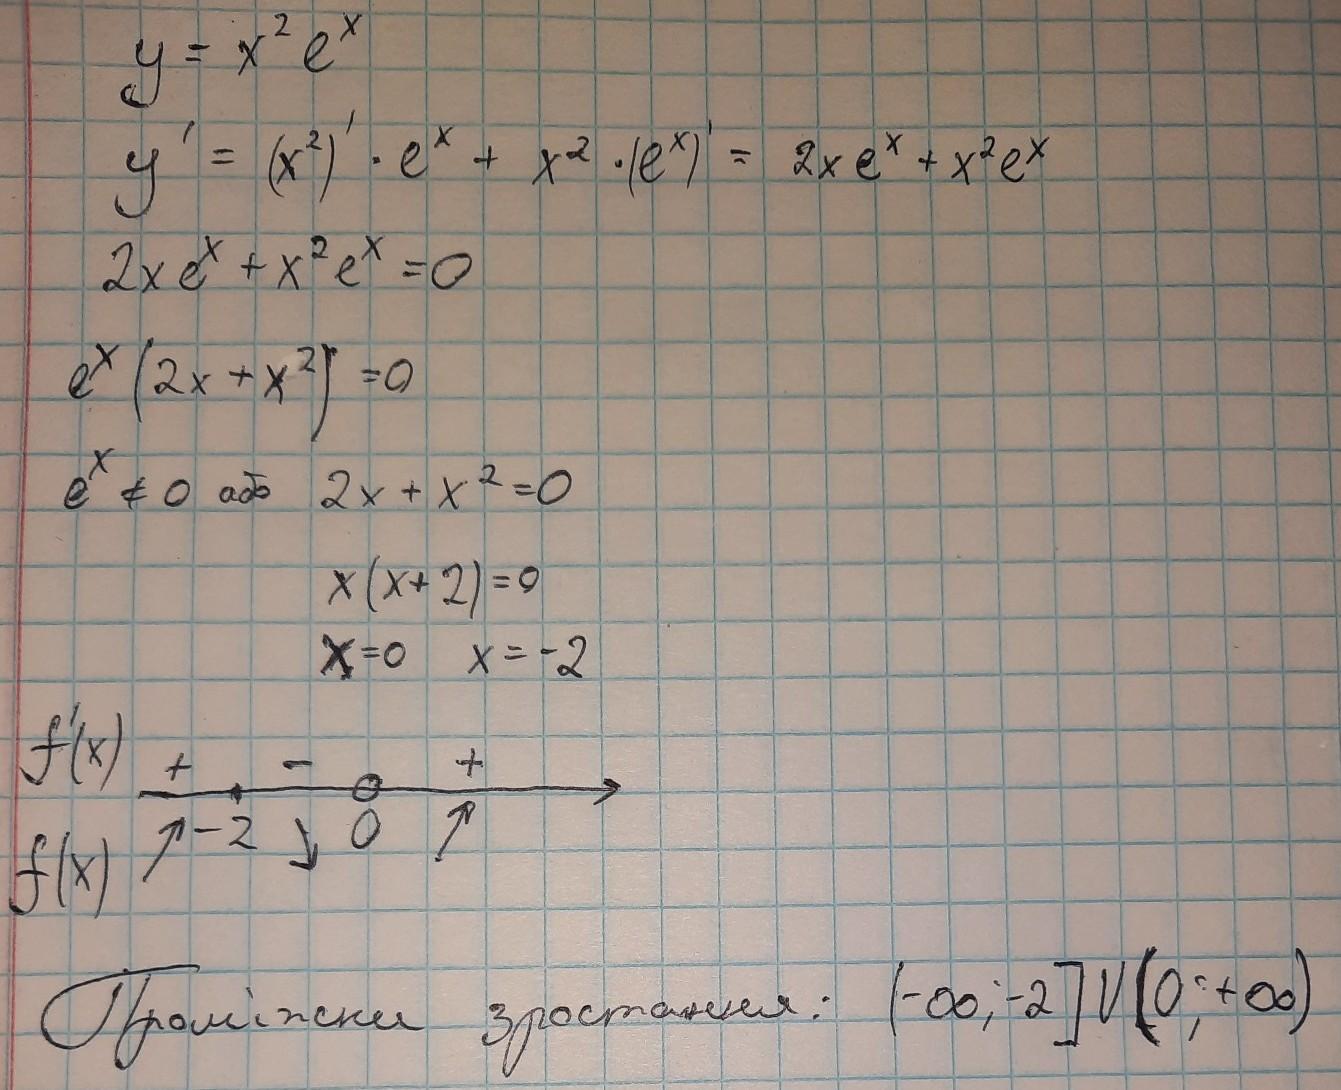 y = x² eˣ
y' = (x²)' · eˣ + x² · (eˣ)' = 2x eˣ + x² eˣ
2x eˣ + x² eˣ = 0
eˣ (2x + x²) = 0
eˣ ≠ 0 або 2x + x² = 0
x(x+2) = 0
x = 0 x = -2
f'(x) + - +
f(x) ↗ -2 ↘ 0 ↗
Проміжки зростання: (-∞; -2] ∪ (0; +∞)